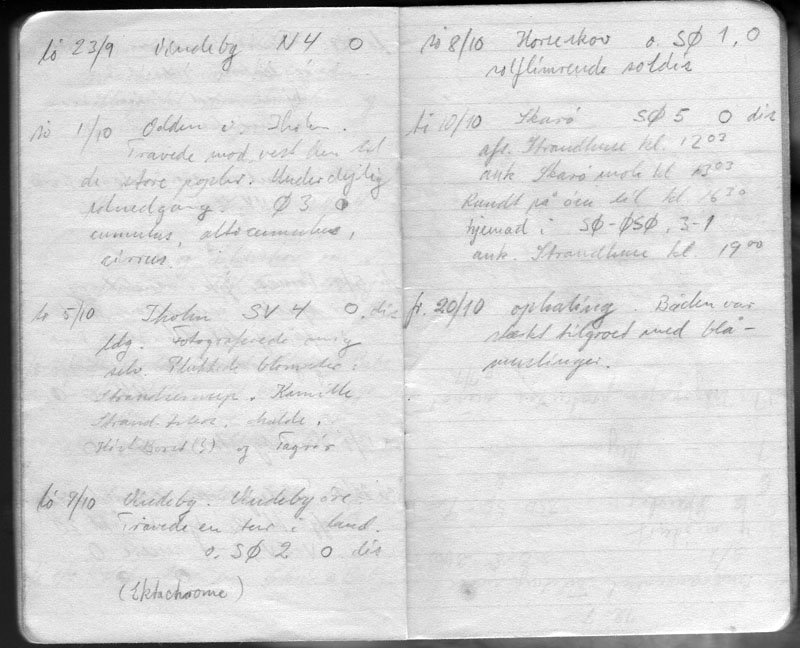 lö 23/9 Vindeby N 4 0
sö 1/10 Odden v. Tholm.
Travede mod vest hen til
de store popler. Under dejlig
solnedgang. Ø 3 0
cumulus, altocumulus,
cirrus.
to 5/10 Tholm SV 4 0. dis
ldg. Fotograferede mig
selv. Plukkede blomster:
Kamille,
Strand
og Tagrör
lö 7/10 Vindeby. Vindebyöre
Travede en tur i land.
o. SØ 2 0 dis
(Ektachrome)
sö 8/10 Horseskov o. SØ 1, 0
solflimrende soldis
ti 10/10 Skarö SØ 5 0 dis
afs. Strandhuse kl. 12 03
ank. Skarö mole kl 13 03
Rundt på öen til kl. 16 30
hjemad i SØ-ØSØ, 3-1
ank. Strandhuse kl. 19 00
fr. 20/10 ophaling. Båden var
stærkt tilgroet med blå-
muslinger.